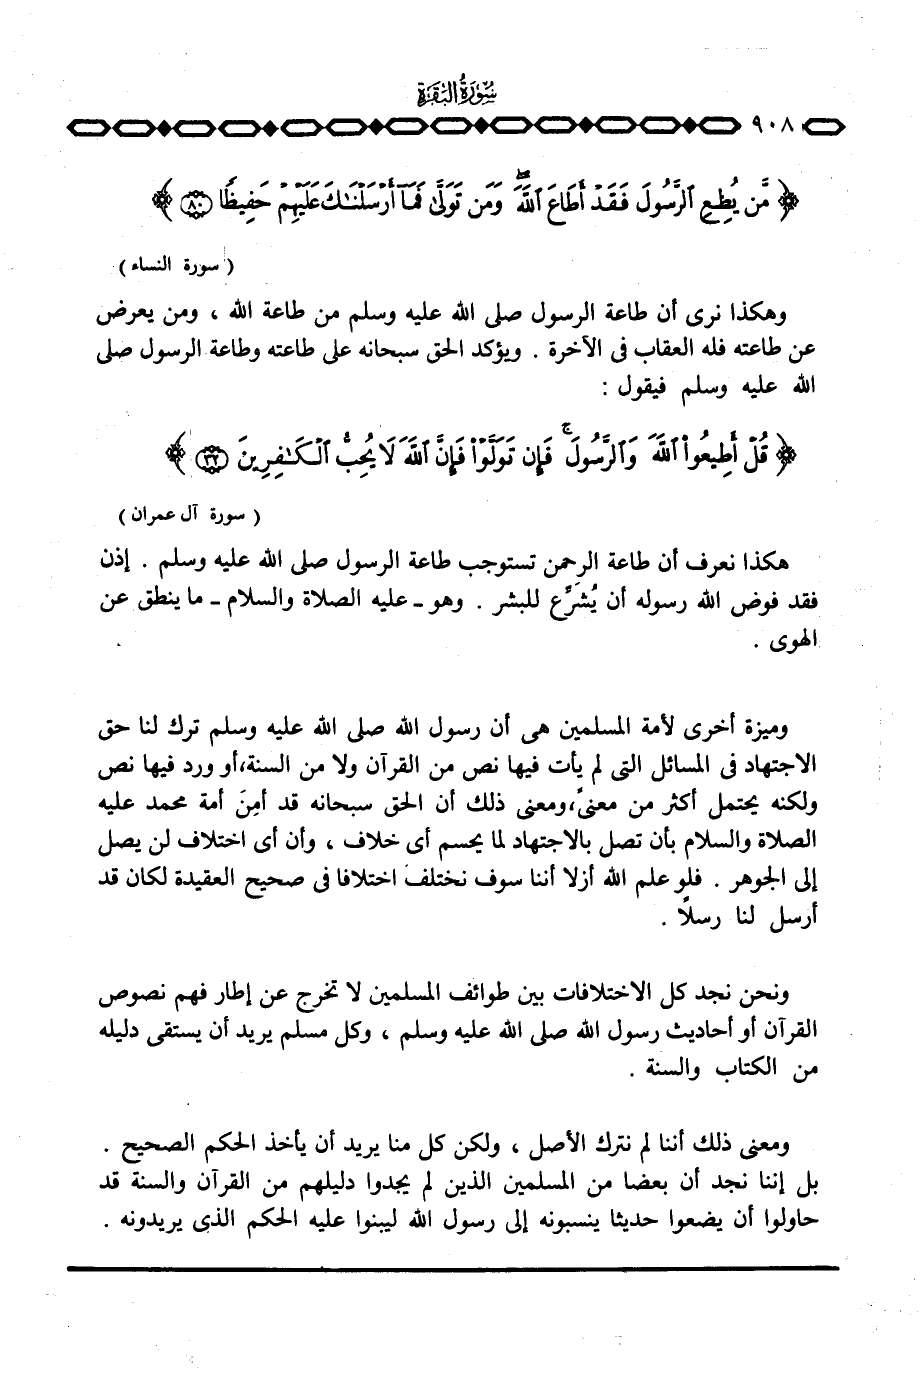 سُورَةُ البَقَرَةِ
٩٠٨
﴿ مَّن يُطِعِ ٱلرَّسُولَ فَقَدْ أَطَاعَ ٱللَّهَ ۖ وَمَن تَوَلَّىٰ فَمَآ أَرْسَلْنَـٰكَ عَلَيْهِمْ حَفِيظًا ٨٠ ﴾
( سورة النساء )
وهكذا نرى أن طاعة الرسول صلى الله عليه وسلم من طاعة الله ، ومن يعرض
عن طاعته فله العقاب فى الآخرة . ويؤكد الحق سبحانه على طاعته وطاعة الرسول صلى
الله عليه وسلم فيقول :
﴿ قُلْ أَطِيعُوا۟ ٱللَّهَ وَٱلرَّسُولَ ۖ فَإِن تَوَلَّوْا۟ فَإِنَّ ٱللَّهَ لَا يُحِبُّ ٱلْكَـٰفِرِينَ ٣٢ ﴾
( سورة آل عمران )
هكذا نعرف أن طاعة الرحمن تستوجب طاعة الرسول صلى الله عليه وسلم . إذن
فقد فوض الله رسوله أن يُشَرِّع للبشر . وهو ـ عليه الصلاة والسلام ـ ما ينطق عن
الهوى .
وميزة أخرى لأمة المسلمين هى أن رسول الله صلى الله عليه وسلم ترك لنا حق
الاجتهاد فى المسائل التى لم يأت فيها نص من القرآن ولا من السنة،أو ورد فيها نص
ولكنه يحتمل أكثر من معنىً،ومعنى ذلك أن الحق سبحانه قد أمِنَ أمة محمد عليه
الصلاة والسلام بأن تصل بالاجتهاد لما يحسم أى خلاف ، وأن أى اختلاف لن يصل
إلى الجوهر . فلو علم الله أزلا أننا سوف نختلف اختلافا فى صحيح العقيدة لكان قد
أرسل لنا رسلاً .
ونحن نجد كل الاختلافات بين طوائف المسلمين لا تخرج عن إطار فهم نصوص
القرآن أو أحاديث رسول الله صلى الله عليه وسلم ، وكل مسلم يريد أن يستقى دليله
من الكتاب والسنة .
ومعنى ذلك أننا لم نترك الأصل ، ولكن كل منا يريد أن يأخذ الحكم الصحيح .
بل إننا نجد أن بعضا من المسلمين الذين لم يجدوا دليلهم من القرآن والسنة قد
حاولوا أن يضعوا حديثا ينسبونه إلى رسول الله ليبنوا عليه الحكم الذى يريدونه .